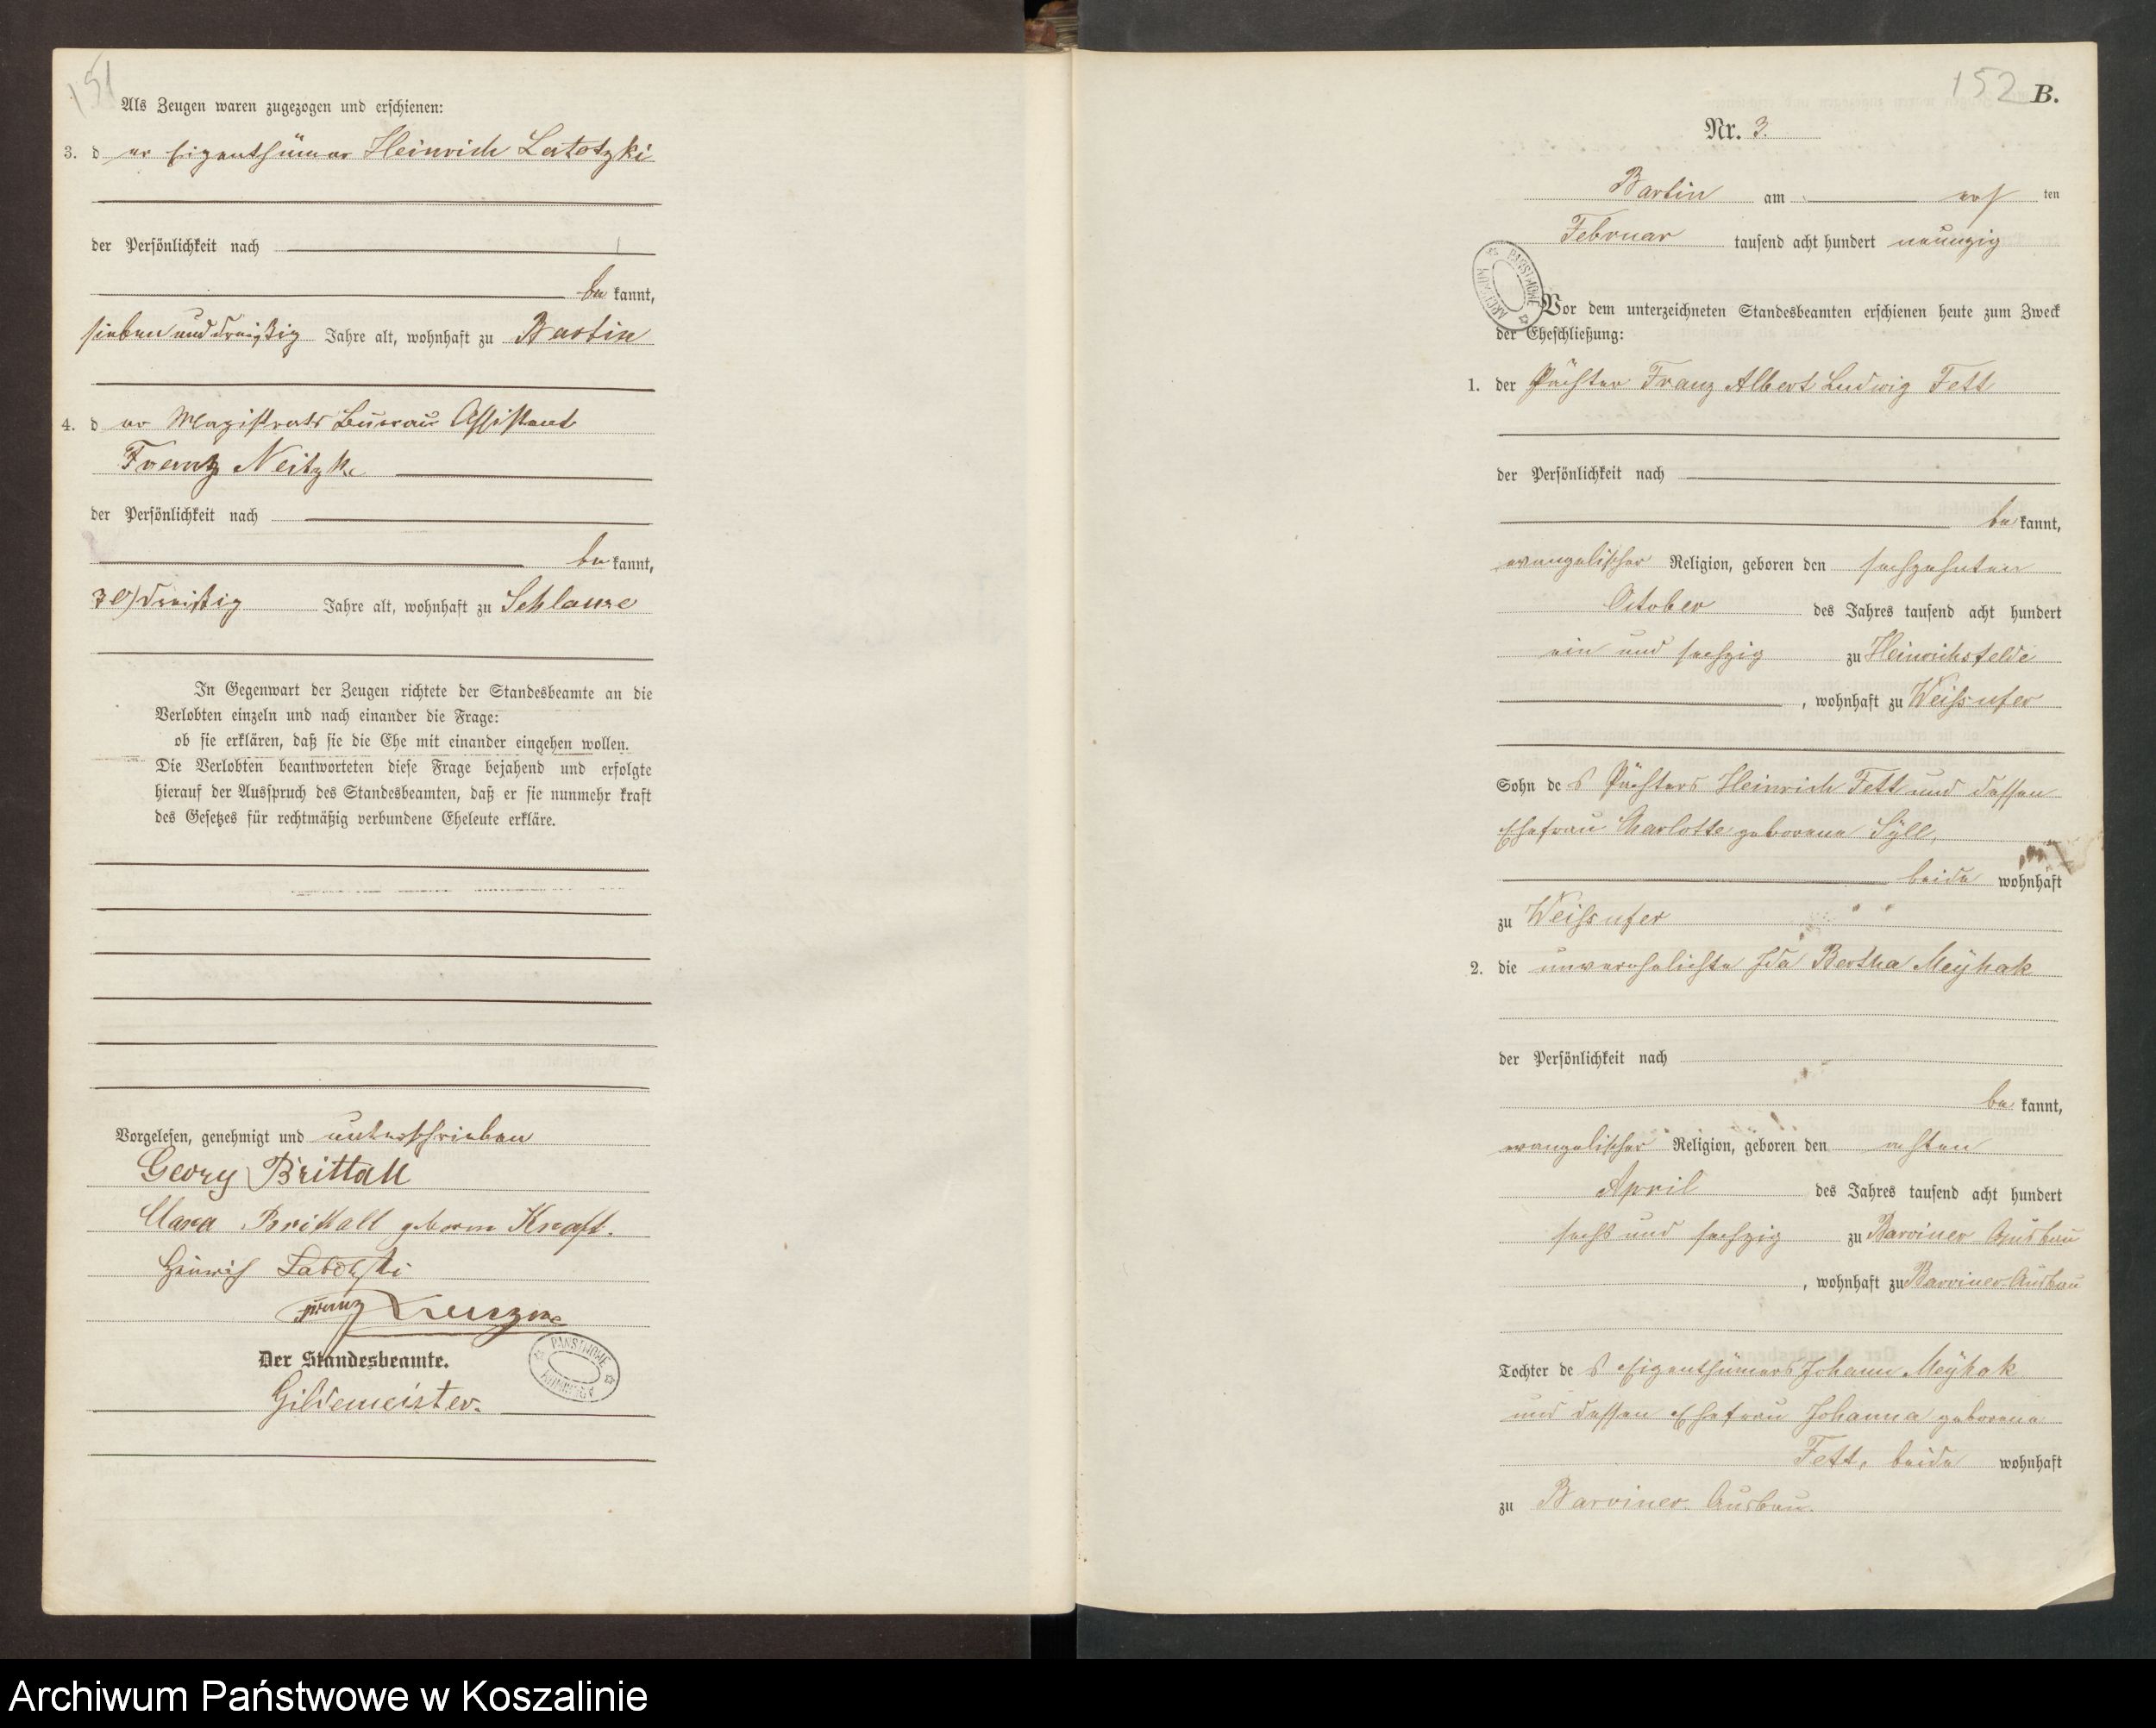 151
Als Zeugen waren zugezogen und erschienen:
3. der Eigenthümer Heinrich Latotzki
der Persönlichkeit nach
bekannt,
sieben und dreißig Jahre alt, wohnhaft zu Bartin
4. der Magistrats Bureau Assistent
Franz Neitzke
der Persönlichkeit nach
bekannt,
30) dreißig Jahre alt, wohnhaft zu Schlawe
In Gegenwart der Zeugen richtete der Standesbeamte an die
Verlobten einzeln und nach einander die Frage:
ob sie erklären, daß sie die Ehe mit einander eingehen wollen.
Die Verlobten beantworteten diese Frage bejahend und erfolgte
hierauf der Ausspruch des Standesbeamten, daß er sie nunmehr kraft
des Gesetzes für rechtmäßig verbundene Eheleute erkläre.
Vorgelesen, genehmigt und unterschrieben
Georg Brittall
Clara Brittall geborne Kraft.
Heinrich
Franz
Der Standesbeamte.
Gildemeister.
PAŃSTWOWE ARCHIWUM
152 B.
Nr. 3.
Bartin am ersten
Februar tausend acht hundert neunzig
PAŃSTWOWE ARCHIWUM
Vor dem unterzeichneten Standesbeamten erschienen heute zum Zweck
der Eheschließung:
1. der Pächter Franz Albert Ludwig Fett
der Persönlichkeit nach
bekannt,
evangelischer Religion, geboren den sechzehnten
October des Jahres tausend acht hundert
ein und sechzig zu Heinrichsfelde
, wohnhaft zu Weissufer
Sohn des Pächters Heinrich Fett und dessen
Ehefrau Charlotte geborene Syll,
beide wohnhaft
zu Weissufer
2. die unverehelichte Ida Bertha Meyhak
der Persönlichkeit nach
bekannt,
evangelischer Religion, geboren den achten
April des Jahres tausend acht hundert
sechs und sechzig zu Barviner Ausbau
, wohnhaft zu Barviner-Ausbau
Tochter des Eigenthümers Johann Meyhak
und dessen Ehefrau Johanna geborene
Fett, beide wohnhaft
zu Barviner-Ausbau.
Archiwum Państwowe w Koszalinie